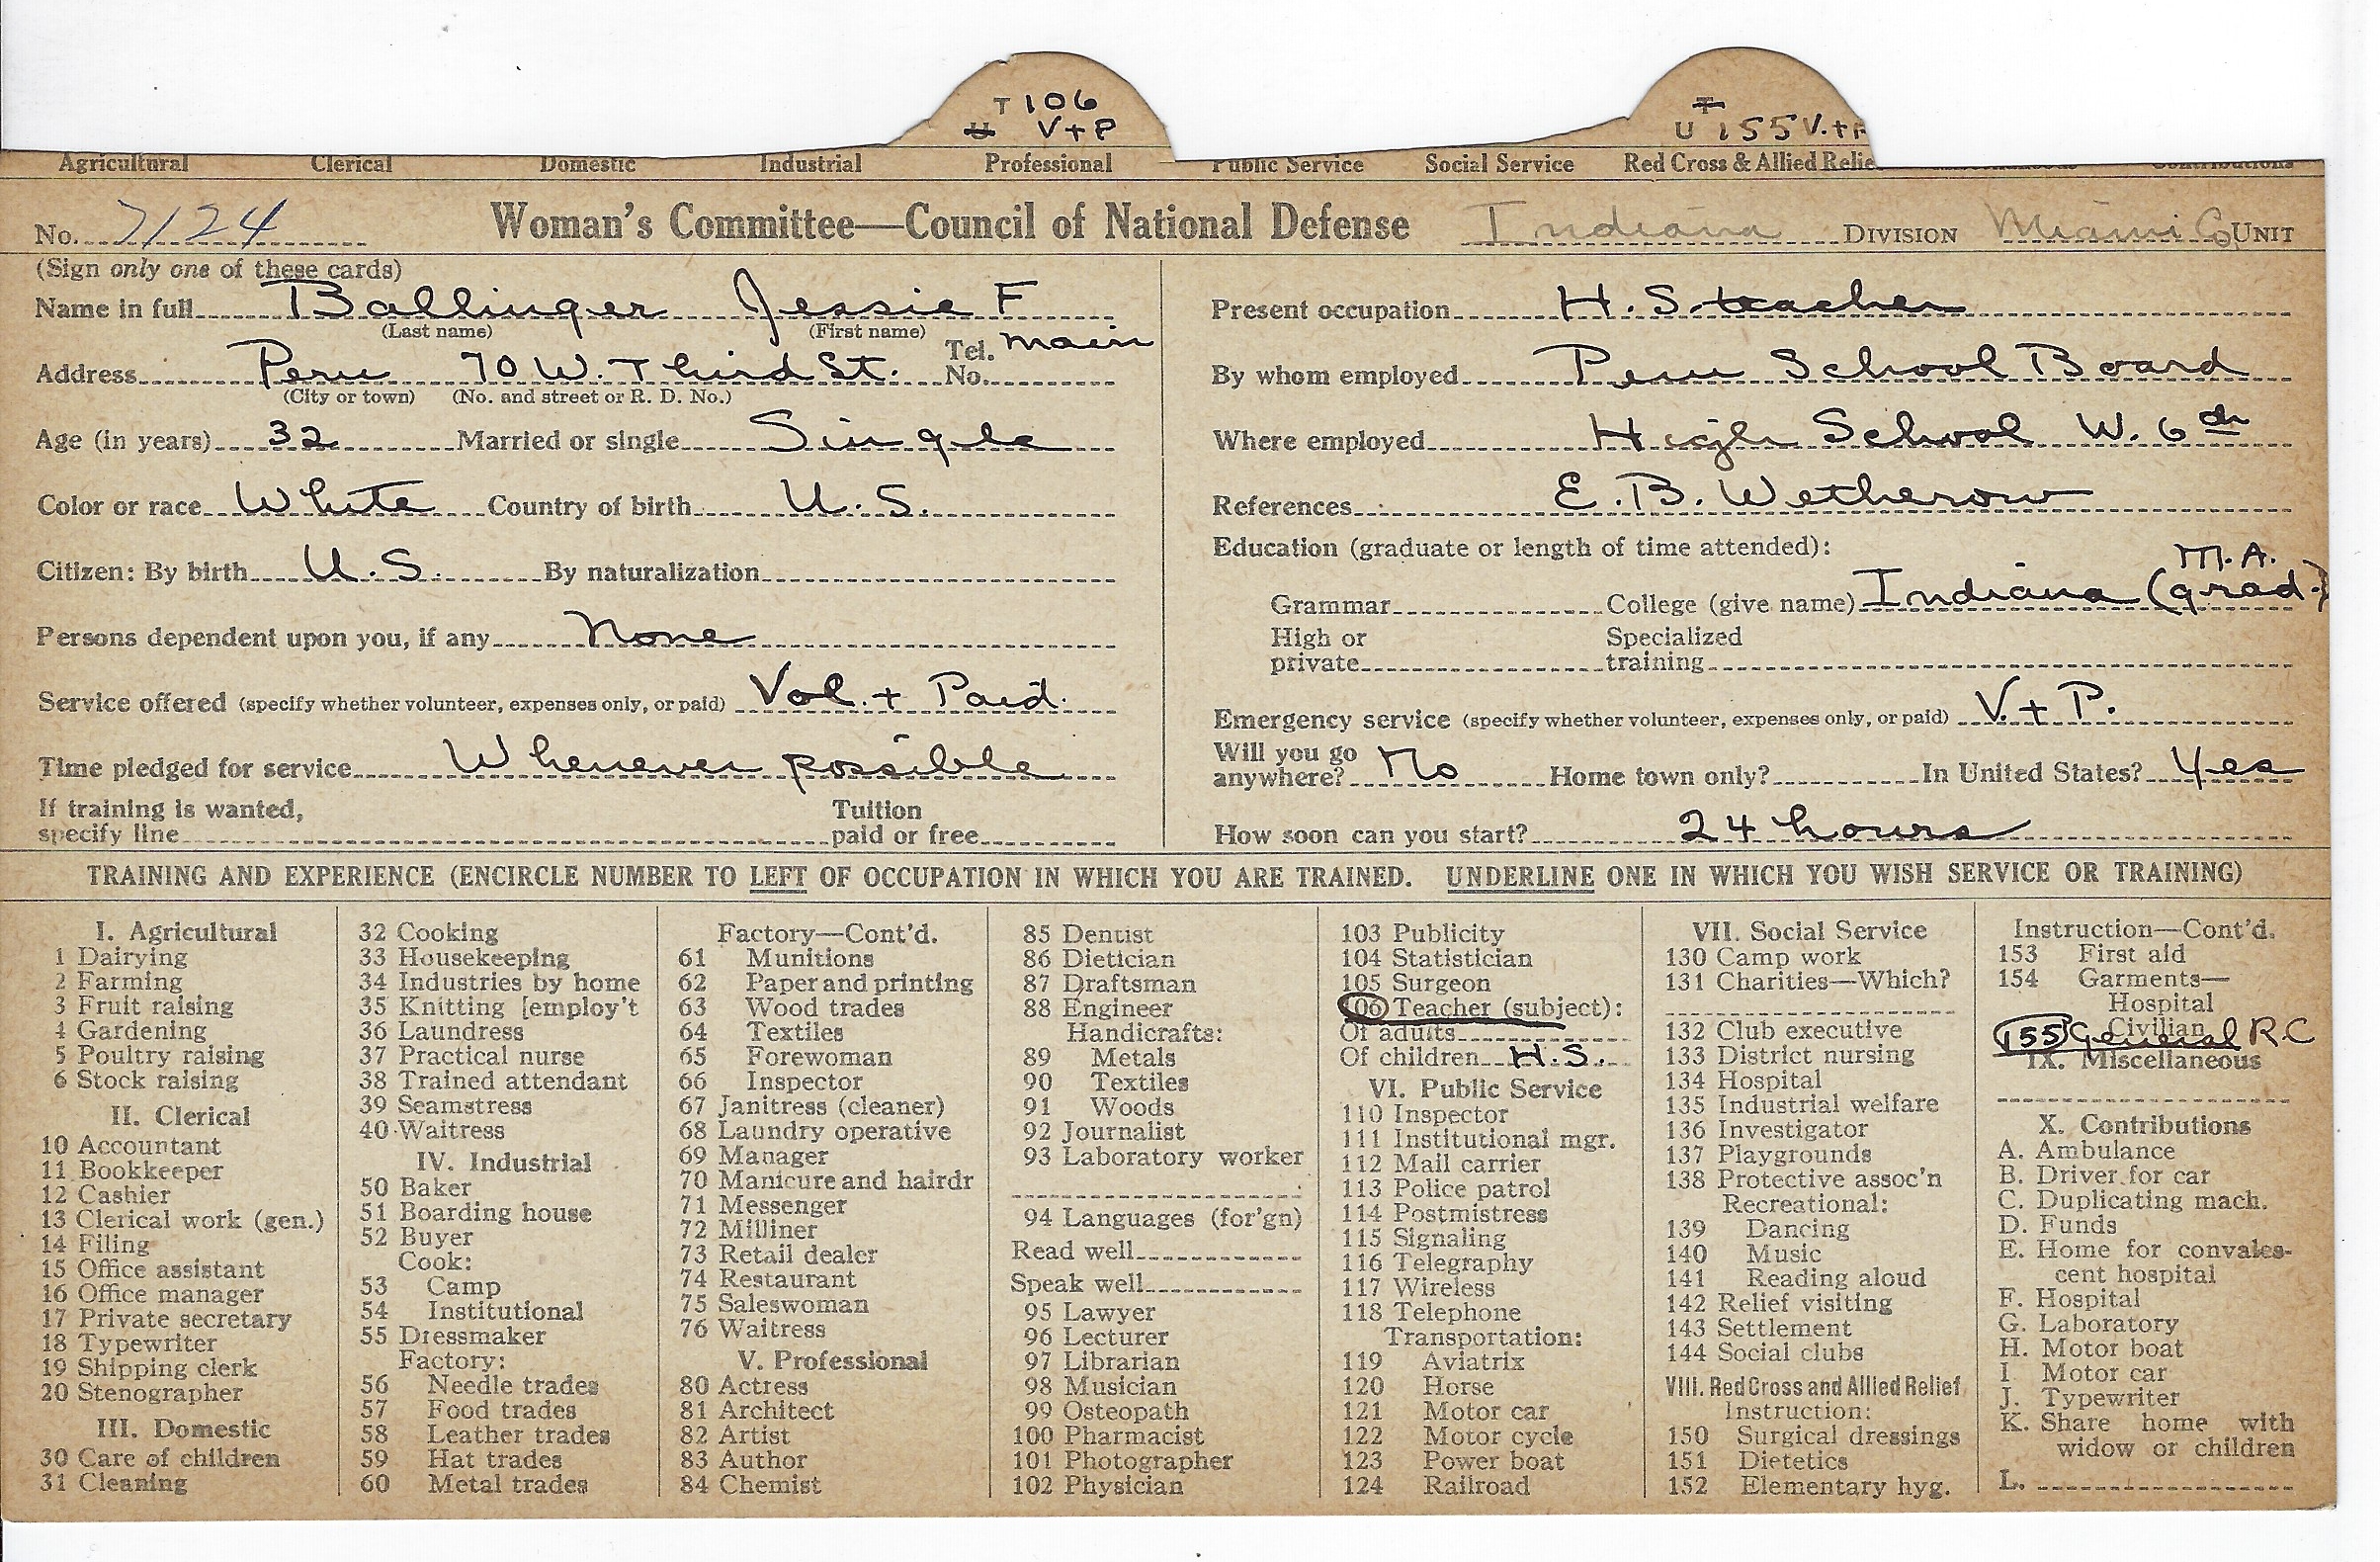 T 106
U V+P
T
U 155 V.+P
Agricultural Clerical Domestic Industrial Professional Public Service Social Service Red Cross & Allied Relie Contributions
No. 7124 Woman's Committee—Council of National Defense Indiana DIVISION Miami Co. UNIT
(Sign only one of these cards)
Name in full Ballinger Jessie F
(Last name) (First name)
Address Peru 70 W. Third St. Tel. No. main
(City or town) (No. and street or R. D. No.)
Age (in years) 32 Married or single Single
Color or race White Country of birth U.S.
Citizen: By birth U.S. By naturalization
Persons dependent upon you, if any None
Service offered (specify whether volunteer, expenses only, or paid) Vol. + Paid.
Time pledged for service Whenever possible
If training is wanted, Tuition
specify line paid or free
Present occupation H.S. teacher
By whom employed Peru School Board
Where employed High School W. 6th
References E. B. Wetherow
Education (graduate or length of time attended):
M.A.
Grammar College (give name) Indiana (grad.)
High or Specialized
private training
Emergency service (specify whether volunteer, expenses only, or paid) V. + P.
Will you go
anywhere? No Home town only? In United States? Yes
How soon can you start? 24 hours
TRAINING AND EXPERIENCE (ENCIRCLE NUMBER TO LEFT OF OCCUPATION IN WHICH YOU ARE TRAINED. UNDERLINE ONE IN WHICH YOU WISH SERVICE OR TRAINING)
I. Agricultural
1 Dairying
2 Farming
3 Fruit raising
4 Gardening
5 Poultry raising
6 Stock raising
II. Clerical
10 Accountant
11 Bookkeeper
12 Cashier
13 Clerical work (gen.)
14 Filing
15 Office assistant
16 Office manager
17 Private secretary
18 Typewriter
19 Shipping clerk
20 Stenographer
III. Domestic
30 Care of children
31 Cleaning
32 Cooking
33 Housekeeping
34 Industries by home
35 Knitting [employ't
36 Laundress
37 Practical nurse
38 Trained attendant
39 Seamstress
40 Waitress
IV. Industrial
50 Baker
51 Boarding house
52 Buyer
Cook:
53 Camp
54 Institutional
55 Dressmaker
Factory:
56 Needle trades
57 Food trades
58 Leather trades
59 Hat trades
60 Metal trades
Factory—Cont'd.
61 Munitions
62 Paper and printing
63 Wood trades
64 Textiles
65 Forewoman
66 Inspector
67 Janitress (cleaner)
68 Laundry operative
69 Manager
70 Manicure and hairdr
71 Messenger
72 Milliner
73 Retail dealer
74 Restaurant
75 Saleswoman
76 Waitress
V. Professional
80 Actress
81 Architect
82 Artist
83 Author
84 Chemist
85 Dentist
86 Dietician
87 Draftsman
88 Engineer
Handicrafts:
89 Metals
90 Textiles
91 Woods
92 Journalist
93 Laboratory worker
94 Languages (for'gn)
Read well
Speak well
95 Lawyer
96 Lecturer
97 Librarian
98 Musician
99 Osteopath
100 Pharmacist
101 Photographer
102 Physician
103 Publicity
104 Statistician
105 Surgeon
106 Teacher (subject):
Of adults
Of children H.S.
VI. Public Service
110 Inspector
111 Institutional mgr.
112 Mail carrier
113 Police patrol
114 Postmistress
115 Signaling
116 Telegraphy
117 Wireless
118 Telephone
Transportation:
119 Aviatrix
120 Horse
121 Motor car
122 Motor cycle
123 Power boat
124 Railroad
VII. Social Service
130 Camp work
131 Charities—Which?
132 Club executive
133 District nursing
134 Hospital
135 Industrial welfare
136 Investigator
137 Playgrounds
138 Protective assoc'n
Recreational:
139 Dancing
140 Music
141 Reading aloud
142 Relief visiting
143 Settlement
144 Social clubs
VIII. Red Cross and Allied Relief
Instruction:
150 Surgical dressings
151 Dietetics
152 Elementary hyg.
Instruction—Cont'd.
153 First aid
154 Garments—
Hospital
Civilian
155 General R.C
IX. Miscellaneous
X. Contributions
A. Ambulance
B. Driver for car
C. Duplicating mach.
D. Funds
E. Home for convales-
cent hospital
F. Hospital
G. Laboratory
H. Motor boat
I Motor car
J. Typewriter
K. Share home with
widow or children
L.